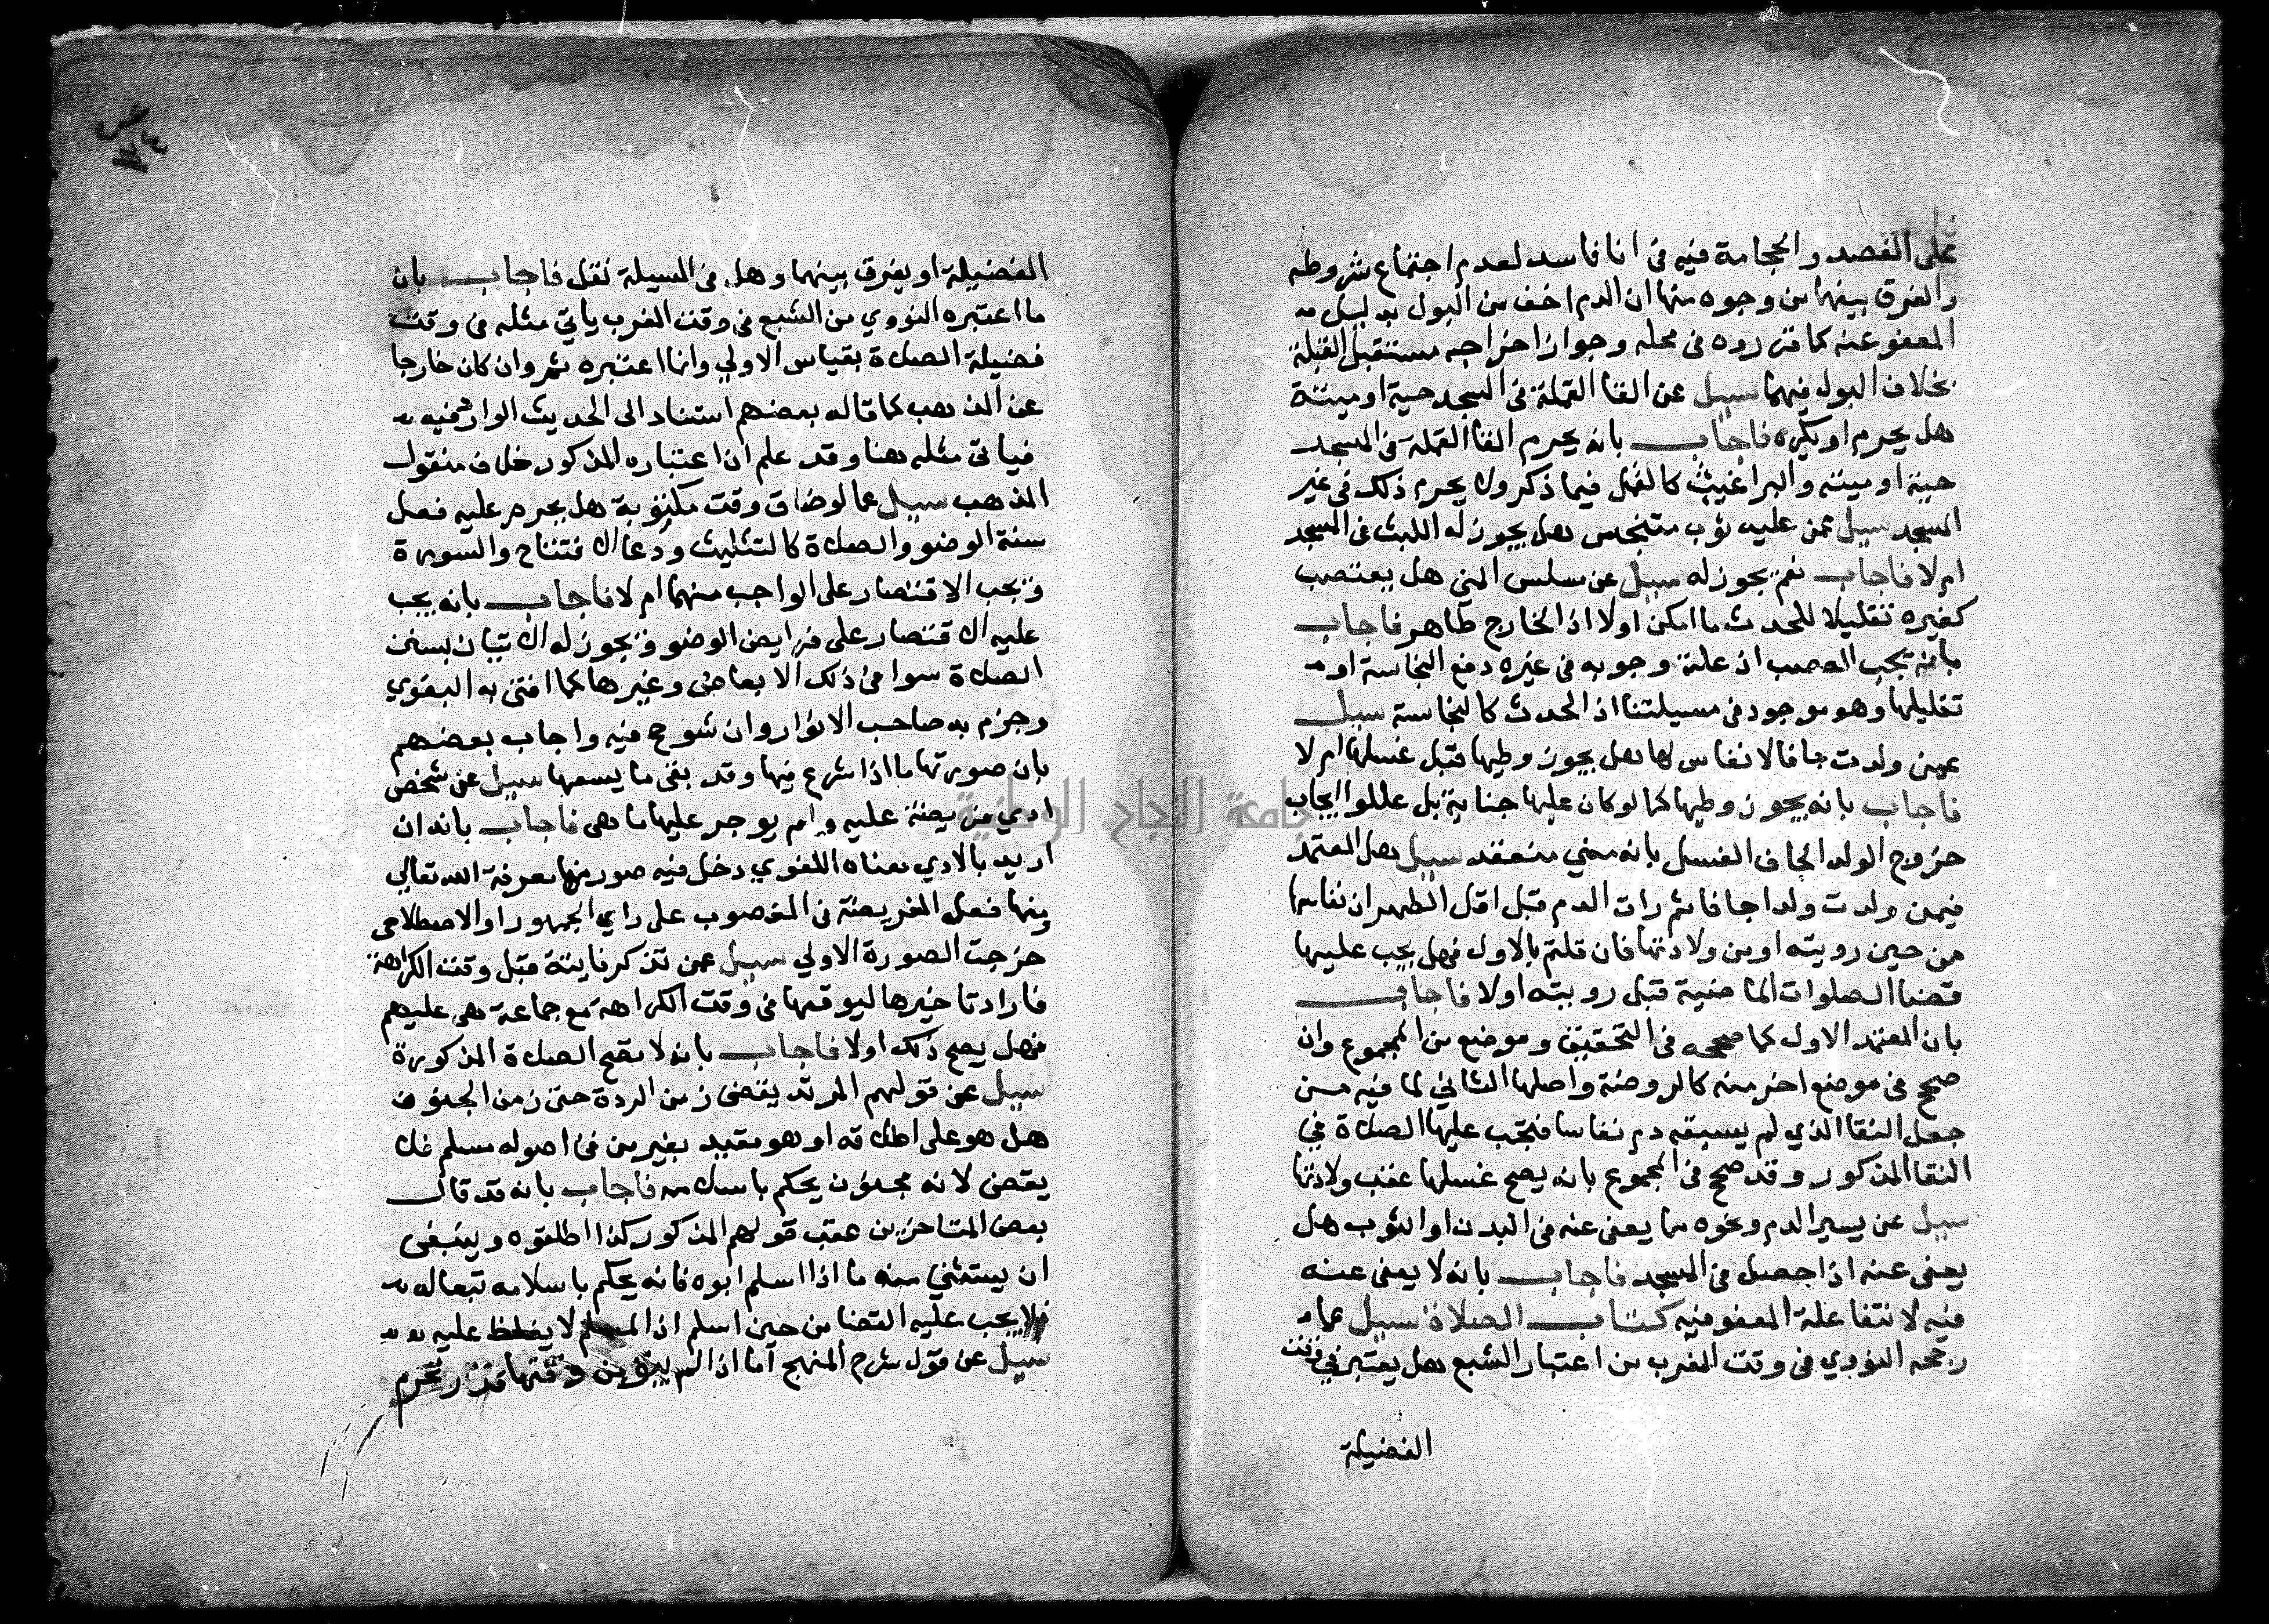 على الفصد والحجامة فيه في انا فاسد لعدم اجتماع شروطه
والفرق بينهما من وجوه منها ان الدم اخف من البول بدليل
المعفو عنه كما قرروه في محله وجواز اخراجه مستقبل القبلة
بخلاف البول فيهما سيل عن القا القملة في المسجد حية او ميتة
هل يحرم او يكره فاجاب بانه يحرم القا القملة في المسجد
حية او ميته والبراغيث كالقمل فيما ذكر ولا يحرم ذلك في غير
المسجد سيل عمن عليه ثوب متنجس هل يجوز له اللبث في المسجد
ام لا فاجاب نعم يجوز له سيل عن سلس المني هل يعتصب
كغيره تقليلا للحدث ما امكن اولا اذ الخارج طاهر فاجاب
بانه يجب العصب اذ علة وجوبه في غيره دفع النجاسة او
تقليلها وهو موجود في مسيلتنا اذ الحدث كالنجاسة سيل
عمن ولدت جافا لا نفاس لها هل يجوز وطيها قبل غسلها ام لا
فاجاب بانه يجوز وطيها كما لو كان عليها جنابة بل عللوا ايجاب
خروج الولد الجاف الغسل بانه مني منعقد سيل هل المعتمد
فيمن ولدت ولدا جافا ثم رات الدم قبل اقل الطهر ان نفاسها
من حين رويته او من ولادتها فان قلتم بالاول فهل يجب عليها
قضا الصلوات الماضية قبل رويته اولا فاجاب
بان المعتمد الاول كما صححه في التحقيق وموضع من المجموع وان
صحح في موضع اخر منه كالروضة واصلها الثاني لما فيه من
جعل النقا الذي لم يسبقه دم نفاسا فتجب عليها الصلاة في
النقا المذكور وقد صحح في المجموع بانه يصح غسلها عقب ولادتها
سيل عن يسير الدم ونحوه مما يعفى عنه في البدن او الثوب هل
يعفى عنه اذا حصل في المسجد فاجاب بانه لا يعفى عنه
فيه لانتفا علة العفو فيه كتاب الصلاة سيل عما
رجحه النووي في وقت المغرب من اعتبار الشبع هل يعتبر في وقت
الفضيلة
الفضيلة او يفرق بينهما وهل في المسيلة نقل فاجاب بان
ما اعتبره النووي من الشبع في وقت المغرب ياتي مثله في وقت
فضيلة الصلاة بقياس الاولي وانما اعتبره ثم وان كان خارجا
عن المذهب كما قاله بعضهم استنادا الى الحديث الوارد فيه
فياتي مثله هنا وقد علم ان اعتباره المذكور خلاف منقول
المذهب سيل عما لو ضاق وقت مكتوبة هل يحرم عليه فعل
سنة الوضو والصلاة كالتثليث ودعا الافتتاح والسورة
ويجب الاقتصار على الواجب منهما ام لا فاجاب بانه يجب
عليه الاقتصار على فرايض الوضو ويجوز له الاتيان بسنن
الصلاة سوا في ذلك الابعاض وغيرها كما افتى به البغوي
وجزم به صاحب الانوار وان شوح فيه واجاب بعضهم
بان صورتها ما اذا شرع فيها وقد بقي ما يسعها سيل عن شخص
ادي فريضة عليه ولم يوجر عليها ما هي فاجاب بانه ان
اريد بالادي معناه اللغوي دخل فيه صور منها معرفة الله تعالي
ومنها فعل الفريضة في المغصوب على راي الجمهور او الاصطلاحي
خرجت الصورة الاولي سيل عمن تذكر فايتة قبل وقت الكراهة
فاراد تاخيرها ليوقعها في وقت الكراهة مع جماعة هي عليهم
فهل يصح ذلك اولا فاجاب بانه لا تصح الصلاة المذكورة
سيل عن قولهم المرتد يقضي زمن الردة حتى زمن الجنون
هل هو على اطلاقه او هو مقيد بغير من في اصوله مسلم فلا
يقضي لانه مجنون يحكم باسلامه فاجاب بانه قد قال
بعض المتاخرين عقب قولهم المذكور كذا اطلقوه وينبغي
ان يستثني منه ما اذا اسلم ابوه فانه يحكم باسلامه تبعا له
فلا يجب عليه القضا من حين اسلم اذ المسلم لا يغلظ عليه
سيل عن قول شرح المنهج اما اذا لم وقتها قدر تحرم